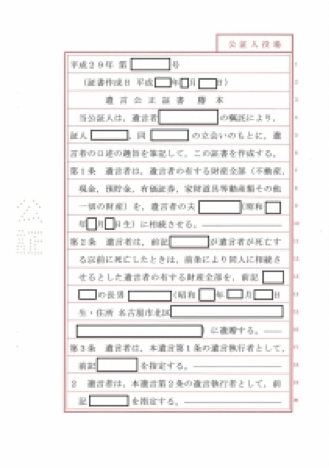 公証人役場
平成29年 第 号
(証書作成日 平成 年 月 日)
遺言公正証書 謄本
当公証人は、遺言者 の嘱託により、
証人 、同 の立会いのもとに、遺
言者の口述の趣旨を筆記して、この証書を作成する。
第1条 遺言者は、遺言者の有する財産全部(不動産、
現金、預貯金、有価証券、家財道具等動産類その他
一切の財産)を、遺言者の夫 (昭和
年 月 日生)に相続させる。
第2条 遺言者は、前記 が遺言者が死亡す
る以前に死亡したときは、前条により同人に相続さ
せるとした遺言者の有する財産全部を、前記
の長男 (昭和 年 月 日
生・住所 名古屋市北区
)に遺贈する。
第3条 遺言者は、本遺言第1条の遺言執行者として、
前記 を指定する。
2 遺言者は、本遺言第2条の遺言執行者として、前
記 を指定する。
公証
1
2
3
4
5
6
7
8
9
10
11
12
13
14
15
16
17
18
19
20